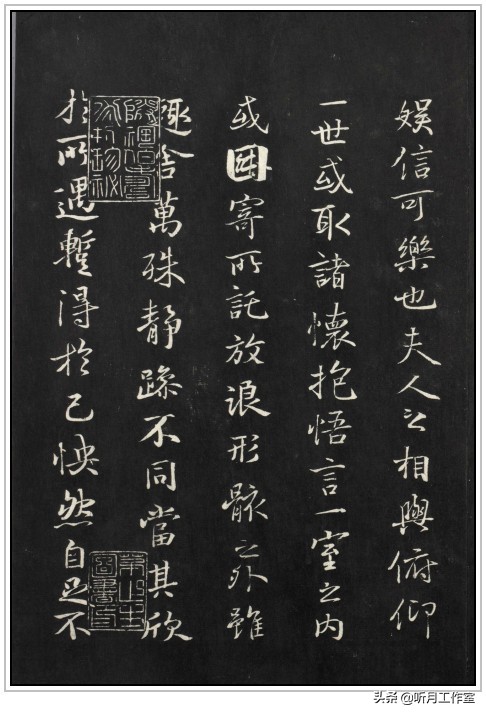 娛信可樂也夫人之相與俯仰
一世或取諸懷抱悟言一室之內
或因寄所託放浪形骸之外雖
趣舍萬殊靜躁不同當其欣
於所遇暫得於己怏然自足不
头条 @听月工作室